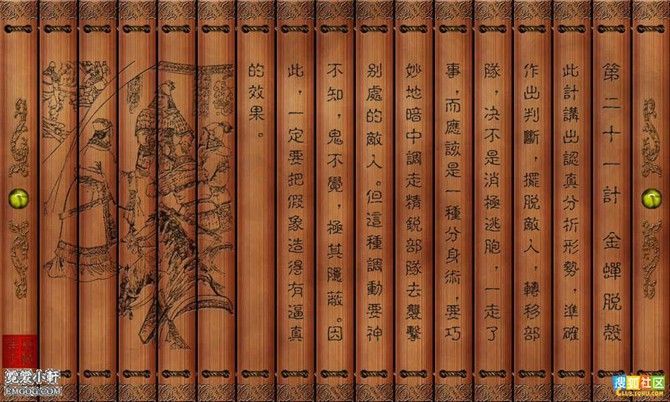 第二十一計 金蟬脱殼
此計講出認真分折形勢，準確
作出判斷，擺脱敵人，轉移部
隊，决不是消極逃胞，一走了
事，而應該是一種分身術，要巧
妙地暗中調走精鋭部隊去襲擊
别處的敵人。但這種調動要神
不知，鬼不覺，極其隱蔽。因
此，一定要把假象造得有逼真
的效果。
小軒
搜狐社区
CLUB.SOHU.COM